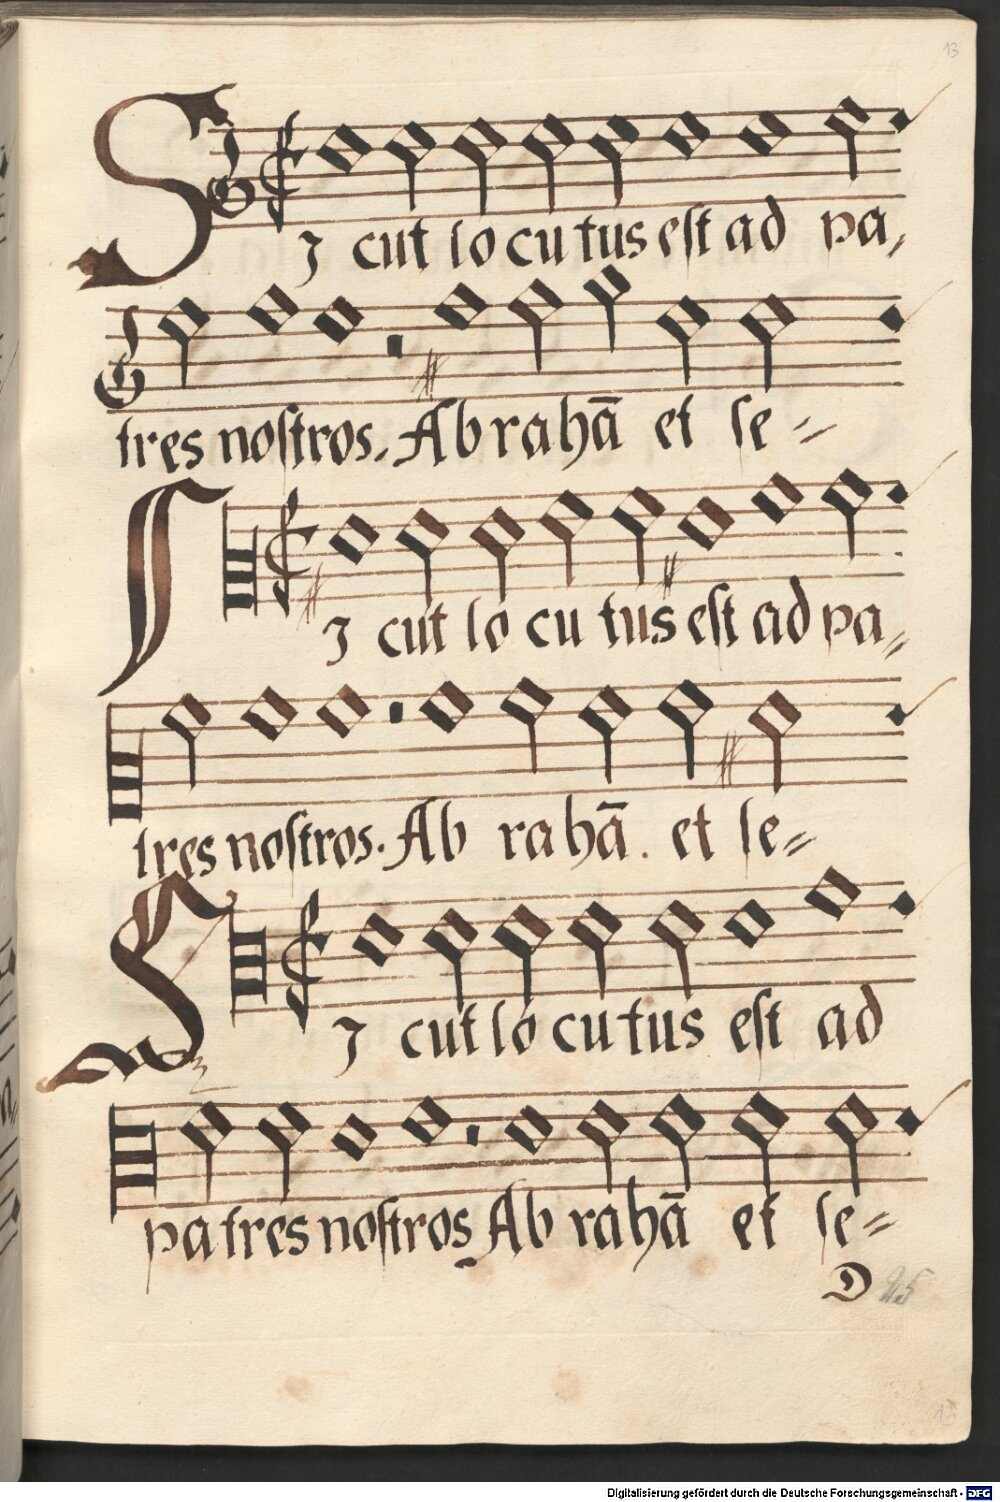 13
SJ cut lo cu tus eſt ad pa,
tres noſtros. Ab ra hā et ſe =
SJ cut lo cu tus eſt ad pa =
tres noſtros. Ab ra hā. et ſe =
SJ cut lo cu tus eſt ad
pa tres noſtros Ab ra hā et ſe =
D
Digitalisierung gefördert durch die Deutsche Forschungsgemeinschaft - DFG